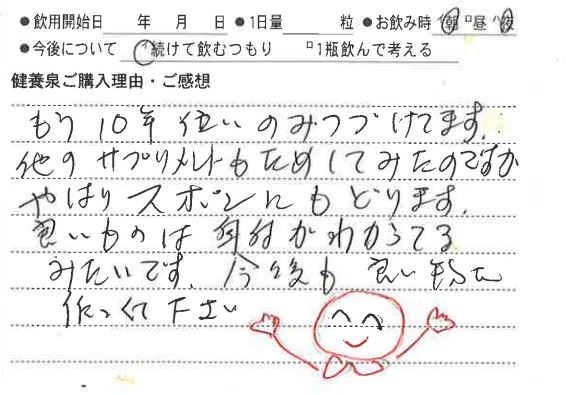 ●飲用開始日　　年　月　日●1日量　　粒●お飲み時 イ朝 ロ昼 ハ夜
●今後について イ続けて飲むつもり ロ1瓶飲んで考える
健養泉ご購入理由・ご感想
もう10年位いのみつづけてます。
他のサプリメントもためしてみたのですが
やはりスポンにもどります。
良いものは身体がわかってる
みたいです。今後も良い物を
作って下さい